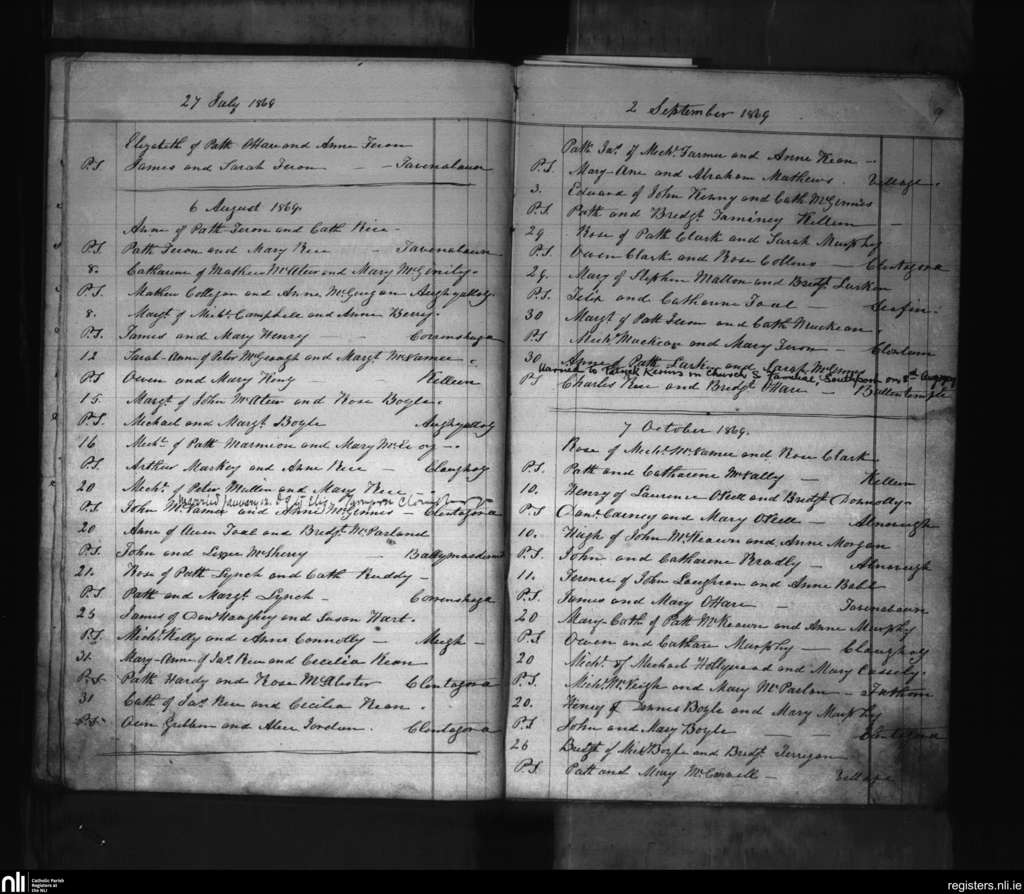 27 July 1869
Elizabeth of Path O'Hare and Anne Feron
P.S. James and Sarah Feron - Tavenabawn
6 August 1869.
Anne of Path Feron and Cath Rice -
P.S. Path Feron and Mary Rice - Tavenabawn
8. Catharine of Mathew McAteer and Mary
P.S. Mathew Collegan and Anne McGuigan Aughyallog
8. Margt. of Michl. Campbell and Anne Berry.
P.S. James and Mary Henry - Correnshega
12 Sarah-Anne of Peter and Margt.
P.S. Owen and Mary King - Killeen
15. Margt. of John McAteer and Rose Boyle.
P.S. Michael and Margt. Boyle Aughyallog
16 Michl. of Path Marmion and Mary McEvoy -
P.S. Arthur Markey and Anne Rice - Cloughog
20 Michl. of Peter Mallon and Mary Rice
Married
P.S. John and Anne McGennis - Clontagora
20 Anne of Owen Toal and Bredgt. McParland
P.S. John and McSherry - Ballymacdermot
21. Rose of Path Lynch and Cath Ruddy -
P.S. Path and Margt. Lynch - Correnshega
25 James of Danl. Haughey and Susan Hart.
P.S. Michl. Kelly and Anne Connolly - Meigh -
31. Mary-Anne of Jas. Rice and Cecilia Kean
P.S. Path Hardy and Rose McAlister Clontagora
31 Cath of Jas. Rice and Cecilia Kean.
P.S. Owen Gribben and Alice Jordan. Clontagora
2 September 1869
9
Path Jas. of Michl. Farmer and Anne Kean -
P.S. Mary-Ane and Abraham Mathews. Village.
3. Edward of John Kenny and Cath McGennis
P.S. Path and Bredgt. Killeen -
29 Rose of Path Clark and Sarah Murphy
P.S. Owen Clark and Rose Collins - Clontagora
29. Mary of Stephen Mallon and Bredgt. Larkin
P.S. Felix and Catharine Toal -
30 Margt. of Path Feron and Cath Muckean.
P.S. Michl. Muckean and Mary Feron - Clontum
30 Anne of Path Larkin and Sarah
Married to Patrick in Church S
P.S. Charles Rice and Bredgt. O'Hare - Bullentemple
7 October 1869.
Rose of Michl. and Rose Clark
P.S. Path and Catharine McNally - Killeen
10. Henry of Laurence O'Neill and Bredgt. Donnolly -
P.S. Danl. Carney and Mary O'Neill - Alnaveigh
10. Hugh of John McKeown and Anne Morgan
P.S. John and Catharine Bradly - Alnaveigh
11. Terence of John Loughran and Anne Bell
P.S. James and Mary O'Hare - Tavenabawn
20 Mary Cath of Path McKeown and Anne Murphy
P.S. Owen and Cathare Murphy - Cloughog
20 Michl. of Michael Hollywood and Mary Cassely.
P.S. Michl. McVeigh and Mary McParlan - Fathom
20. Henry of Dennis Boyle and Mary Murphy
P.S. John and Mary Boyle - Clontagora
26 Bredgt. of Michl. Boyle and Bredgt. Ferrigan
P.S. Path and Mary McConnell - Village
nli
Catholic Parish
Registers at
the NLI
registers.nli.ie